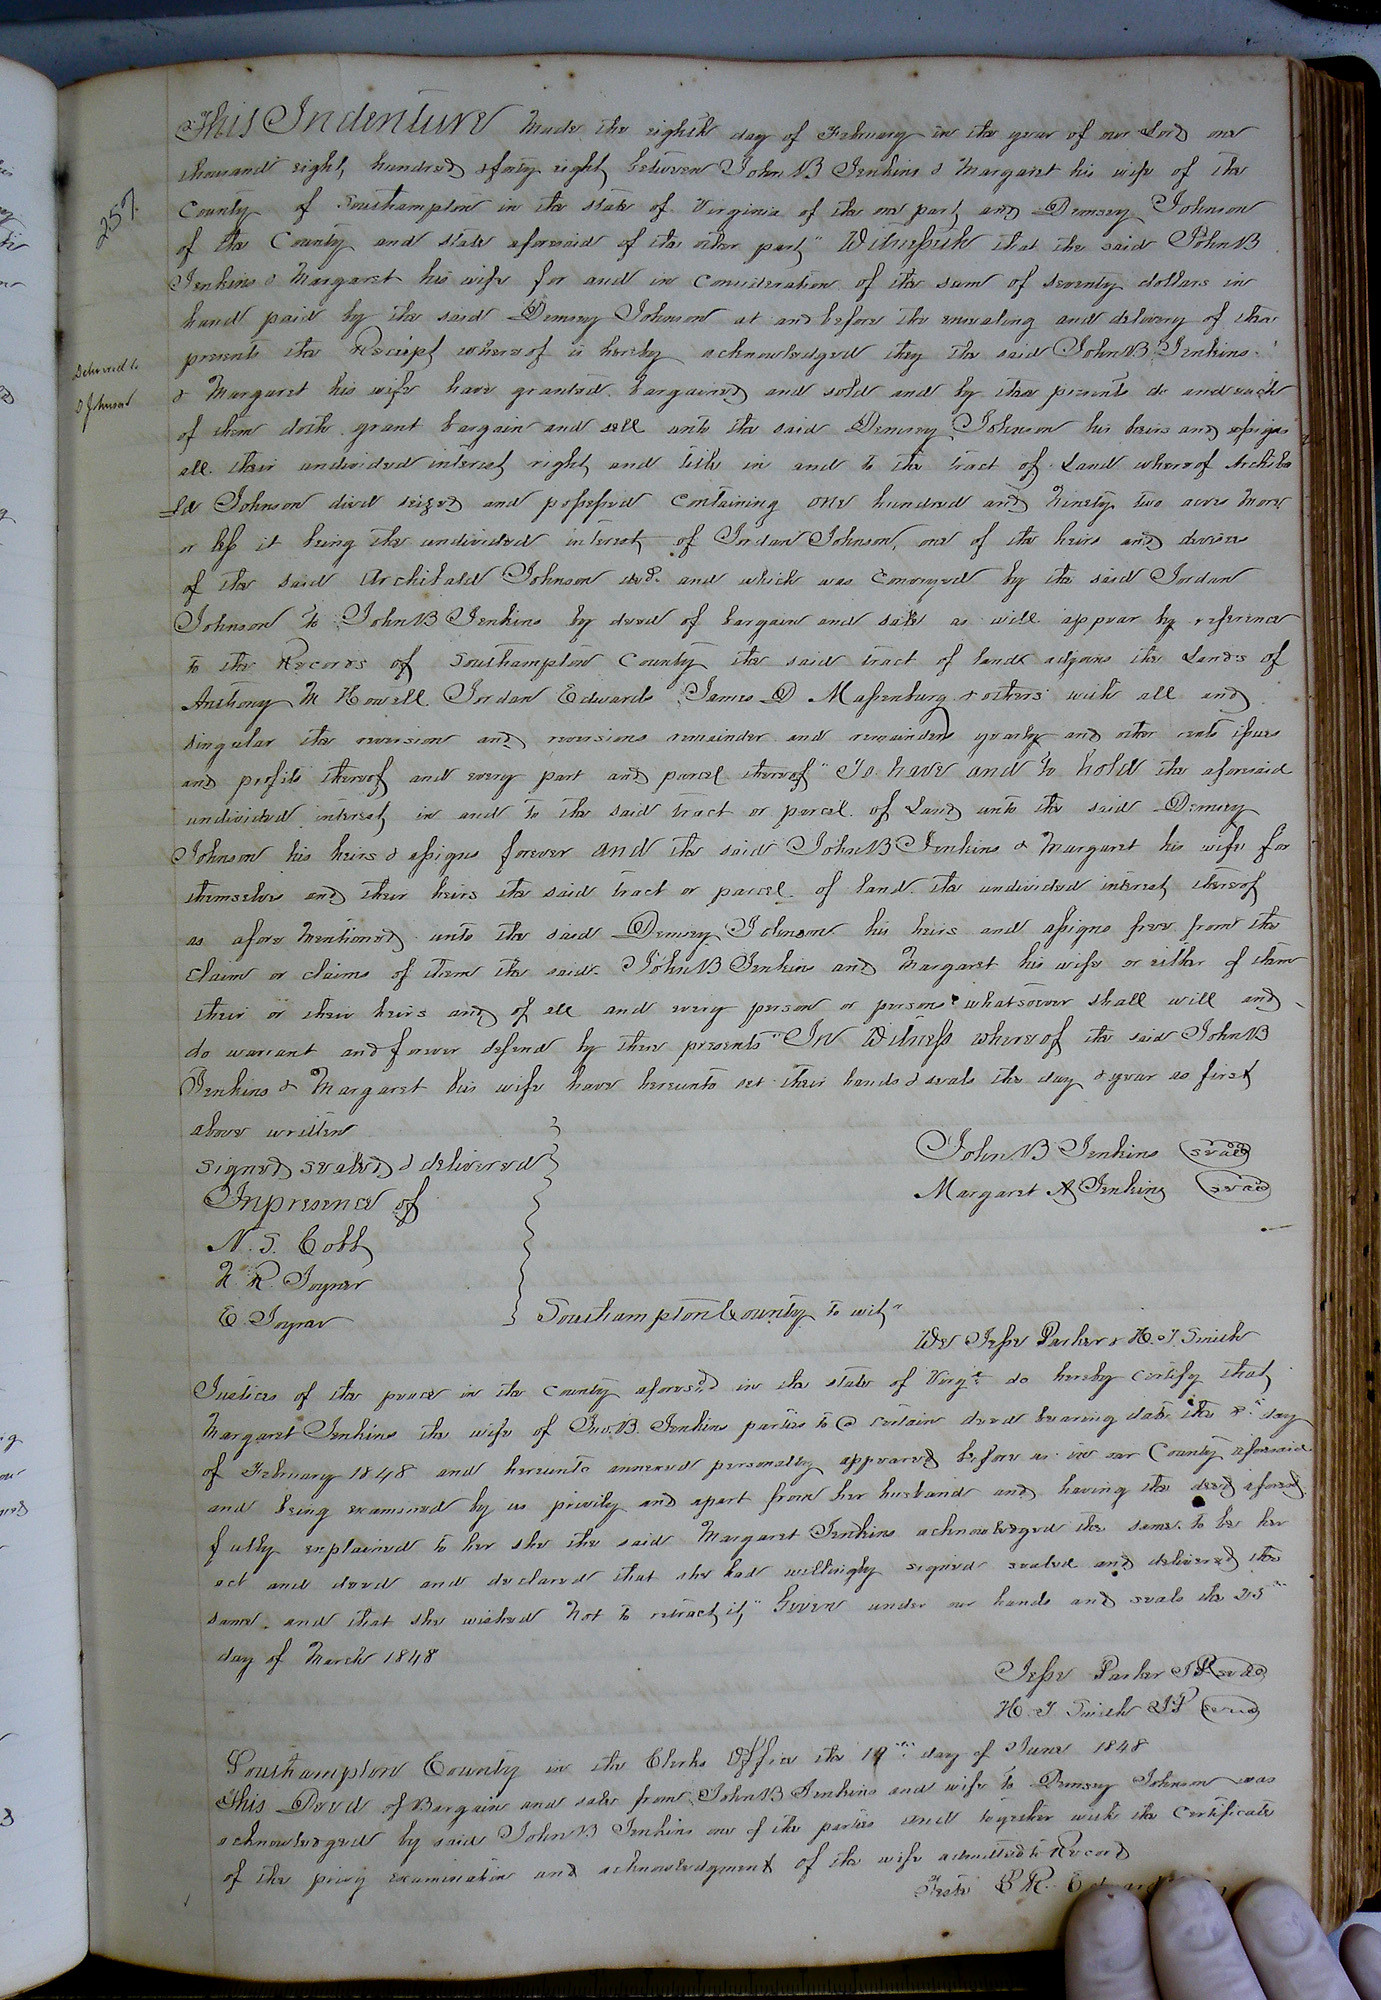 257.
Delivered to
D Johnson
This Indenture Made the eighth day of February in the year of our Lord one
thousand eight, hundred & forty eight between John B Jenkins & Margaret his wife of the
County of Southampton in the state of Virginia of the one part, and Demsey Johnson
of the County and state aforesaid of the other part," Witnesseth that the said John B
Jenkins & Margaret his wife for and in consideration of the sum of seventy dollars in
hand paid by the said Demsey Johnson at and before the ensealing and delivery of these
presents the Receipt whereof is hereby acknowledged they the said John B Jenkins
& Margaret his wife have granted bargained and sold and by these presents do and each
of them doth grant bargain and sell unto the said Demsey Johnson his heirs and assigns
all their undivided interest, right, and title in and to the tract of Land whereof Archiba
ld Johnson died seized and possessed containing one hundred and Ninety two acres More
or less it being the undivided interest of Jordan Johnson, one of the heirs and devisees
of the said Archibald Johnson decd. and which was conveyed by the said Jordan
Johnson to John B Jenkins by deed of bargain and sale as will appear by reference
to the Records of Southampton County the said tract of land adjoins the Lands of
Anthony M Howell Jordan Edwards James D Massenburg & others with all and
singular the reversion and reversions remainder and remainders yearly and other rents issues
and profits thereof and every part and parcel thereof" To have and to hold the aforesaid
undivided interest, in and to the said tract or parcel of Land unto the said Demsey
Johnson his heirs & assigns forever and the said John B Jenkins & Margaret his wife for
themselves and their heirs the said tract or parcel of land the undivided interest, thereof
as afore Mentioned unto the said Demsey Johnson his heirs and assigns free from the
claim or claims of them the said John B Jenkins and Margaret his wife or either of them
their or their heirs and of all and every person or persons whatsoever shall will and
do warrant and forever defend by these presents" In Witness whereof the said John B
Jenkins & Margaret his wife have hereunto set their hands & seals the day & year as first
above written
signed sealed & delivered
In presence of
N. S. Cobb
N. R. Joyner
E. Joyner
John B Jenkins seal
Margaret A Jenkins seal
Southampton County to wit,"
We Jesse Parker & H. J. Smith
Justices of the peace in the county aforesd. in the state of Virga. do hereby certify that,
Margaret Jenkins the wife of Jno. B. Jenkins parties to a certain deed bearing date the 8th day
of February 1848 and hereunto annexed personally appeared before us in our County aforesaid
and being examined by us privily and apart from her husband and having the deed aforesd.
fully explained to her she the said Margaret Jenkins acknowledged the same to be her
act and deed and declared that she had willingly signed sealed and delivered the
same and that she wished Not to retract it," Given under our hands and seals the 25th
day of March 1848
Jesse Parker JP seal
H. J. Smith JP seal
Southampton County in the Clerks Office the 19th day of June 1848
This Deed of Bargain and sale from John B Jenkins and wife to Demsey Johnson was
acknowledged by said John B Jenkins one of the parties and together with the certificate
of the privy examination and acknowledgment of the wife admitted to Record
Teste L R Edwards